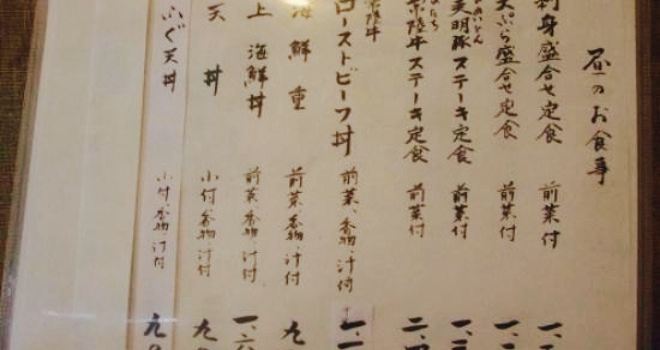 昼のお食事
刺身盛合せ定食 前菜付 一、
天ぷら盛合せ定食 前菜付 一、
美明豚ステーキ定食 前菜付 一、
常陸牛ステーキ定食 前菜付 二、
常陸牛 ローストビーフ丼 前菜、香物、汁付 一、
海鮮重 前菜、香物、汁付 九
上海鮮丼 前菜、香物、汁付 一、
天丼 小付、香物、汁付 九
ふぐ天丼 小付、香物、汁付 九